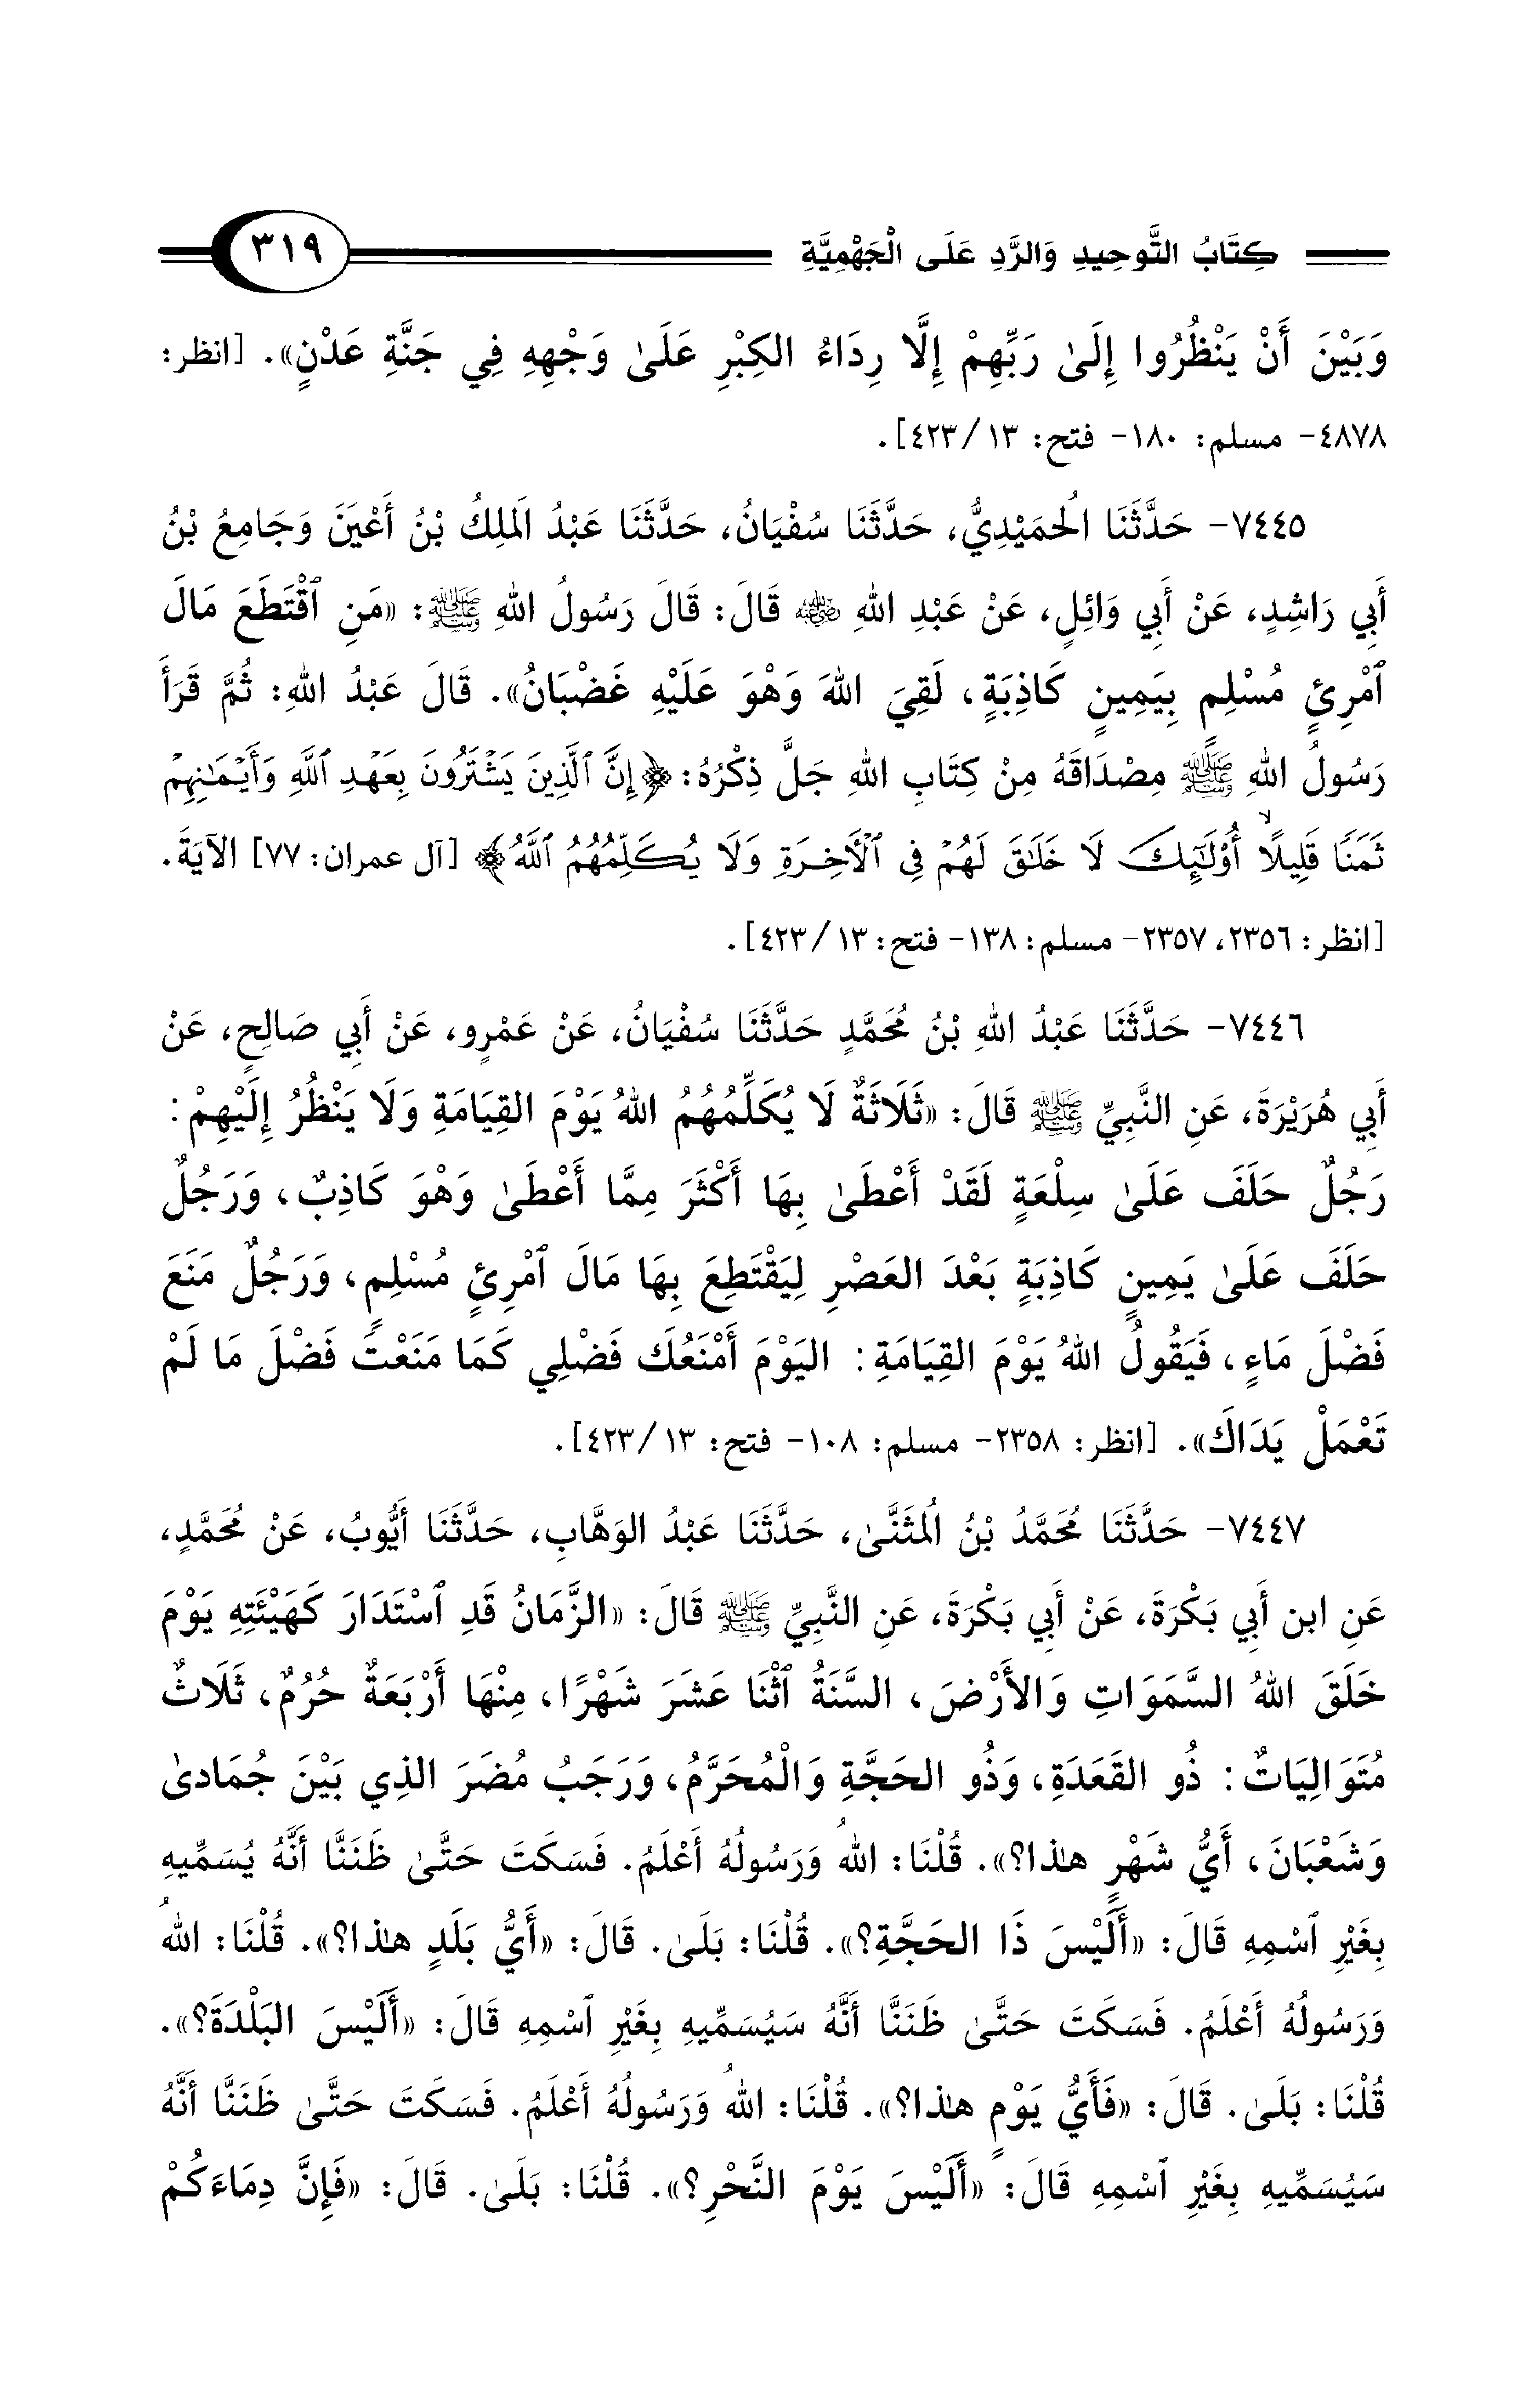 كِتَابُ التَّوحِيدِ وَالرَّدِ عَلَى الْجَهْمِيَّةِ ٣١٩
وَبَيْنَ أَنْ يَنْظُرُوا إِلَىٰ رَبِّهِمْ إِلَّا رِدَاءُ الكِبْرِ عَلَىٰ وَجْهِهِ فِي جَنَّةِ عَدْنٍ». [انظر:
٤٨٧٨- مسلم: ١٨٠- فتح: ١٣/ ٤٢٣].
٧٤٤٥- حَدَّثَنَا الُحمَيْدِيُّ، حَدَّثَنَا سُفْيَانُ، حَدَّثَنَا عَبْدُ الَملِكُ بْنُ أَعْيَنَ وَجَامِعُ بْنُ
أَبِي رَاشِدٍ، عَنْ أَبِي وَائِلٍ، عَنْ عَبْدِ اللهِ رضي الله عنه قَالَ: قَالَ رَسُولُ اللهِ ﷺ: «مَنِ ٱقْتَطَعَ مَالَ
ٱمْرِئٍ مُسْلِمٍ بِيَمِينٍ كَاذِبَةٍ، لَقِيَ اللهَ وَهْوَ عَلَيْهِ غَضْبَانُ». قَالَ عَبْدُ اللهِ: ثُمَّ قَرَأَ
رَسُولُ اللهِ ﷺ مِصْدَاقَهُ مِنْ كِتَابِ اللهِ جَلَّ ذِكْرُهُ: ﴿إِنَّ ٱلَّذِينَ يَشْتَرُونَ بِعَهْدِ ٱللَّهِ وَأَيْمَٰنِهِمْ
ثَمَنًا قَلِيلًا أُوْلَٰٓئِكَ لَا خَلَٰقَ لَهُمْ فِى ٱلْأَخِرَةِ وَلَا يُكَلِّمُهُمُ ٱللَّهُ﴾ [آل عمران: ٧٧] الآيَةَ.
[انظر: ٢٣٥٦، ٢٣٥٧- مسلم: ١٣٨- فتح: ١٣/ ٤٢٣].
٧٤٤٦- حَدَّثَنَا عَبْدُ اللهِ بْنُ مُحَمَّدٍ حَدَّثَنَا سُفْيَانُ، عَنْ عَمْرٍو، عَنْ أَبِي صَالِحٍ، عَنْ
أَبِي هُرَيْرَةَ، عَنِ النَّبِيِّ ﷺ قَالَ: «ثَلَاثَةٌ لَا يُكَلِّمُهُمُ اللهُ يَوْمَ القِيَامَةِ وَلَا يَنْظُرُ إِلَيْهِمْ:
رَجُلٌ حَلَفَ عَلَىٰ سِلْعَةٍ لَقَدْ أَعْطَىٰ بِهَا أَكْثَرَ مِمَّا أَعْطَىٰ وَهْوَ كَاذِبٌ، وَرَجُلٌ
حَلَفَ عَلَىٰ يَمِينٍ كَاذِبَةٍ بَعْدَ العَصْرِ لِيَقْتَطِعَ بِهَا مَالَ ٱمْرِئٍ مُسْلِمٍ، وَرَجُلٌ مَنَعَ
فَضْلَ مَاءٍ، فَيَقُولُ اللهُ يَوْمَ القِيَامَةِ: اليَوْمَ أَمْنَعُكَ فَضْلِي كَمَا مَنَعْتَ فَضْلَ مَا لَمْ
تَعْمَلْ يَدَاكَ». [انظر: ٢٣٥٨- مسلم: ١٠٨- فتح: ١٣/ ٤٢٣].
٧٤٤٧- حَدَّثَنَا مُحَمَّدُ بْنُ الُمثَنَّىٰ، حَدَّثَنَا عَبْدُ الوَهَّابِ، حَدَّثَنَا أَيُّوبُ، عَنْ مُحَمَّدٍ،
عَنِ ابن أَبِي بَكْرَةَ، عَنْ أَبِي بَكْرَةَ، عَنِ النَّبِيِّ ﷺ قَالَ: «الزَّمَانُ قَدِ ٱسْتَدَارَ كَهَيْئَتِهِ يَوْمَ
خَلَقَ اللهُ السَّمَوَاتِ وَالأَرْضَ، السَّنَةُ ٱثْنَا عَشَرَ شَهْرًا، مِنْهَا أَرْبَعَةٌ حُرُمٌ، ثَلَاثٌ
مُتَوَالِيَاتٌ: ذُو القَعَدَةِ، وَذُو الحَجَّةِ وَالْمُحَرَّمُ، وَرَجَبُ مُضَرَ الذِي بَيْنَ جُمَادىٰ
وَشَعْبَانَ، أَيُّ شَهْرٍ هٰذا؟». قُلْنَا: اللهُ وَرَسُولُهُ أَعْلَمُ. فَسَكَتَ حَتَّىٰ ظَنَنَّا أَنَّهُ يُسَمِّيهِ
بِغَيْرِ ٱسْمِهِ قَالَ: «أَلَيْسَ ذَا الحَجَّةِ؟». قُلْنَا: بَلَىٰ. قَالَ: «أَيُّ بَلَدٍ هٰذا؟». قُلْنَا: اللهُ
وَرَسُولُهُ أَعْلَمُ. فَسَكَتَ حَتَّىٰ ظَنَنَّا أَنَّهُ سَيُسَمِّيهِ بِغَيْرِ ٱسْمِهِ قَالَ: «أَلَيْسَ البَلْدَةَ؟».
قُلْنَا: بَلَىٰ. قَالَ: «فَأَيُّ يَوْمٍ هٰذا؟». قُلْنَا: اللهُ وَرَسُولُهُ أَعْلَمُ. فَسَكَتَ حَتَّىٰ ظَنَنَّا أَنَّهُ
سَيُسَمِّيهِ بِغَيْرِ ٱسْمِهِ قَالَ: «أَلَيْسَ يَوْمَ النَّحْرِ؟». قُلْنَا: بَلَىٰ. قَالَ: «فَإِنَّ دِمَاءَكُمْ